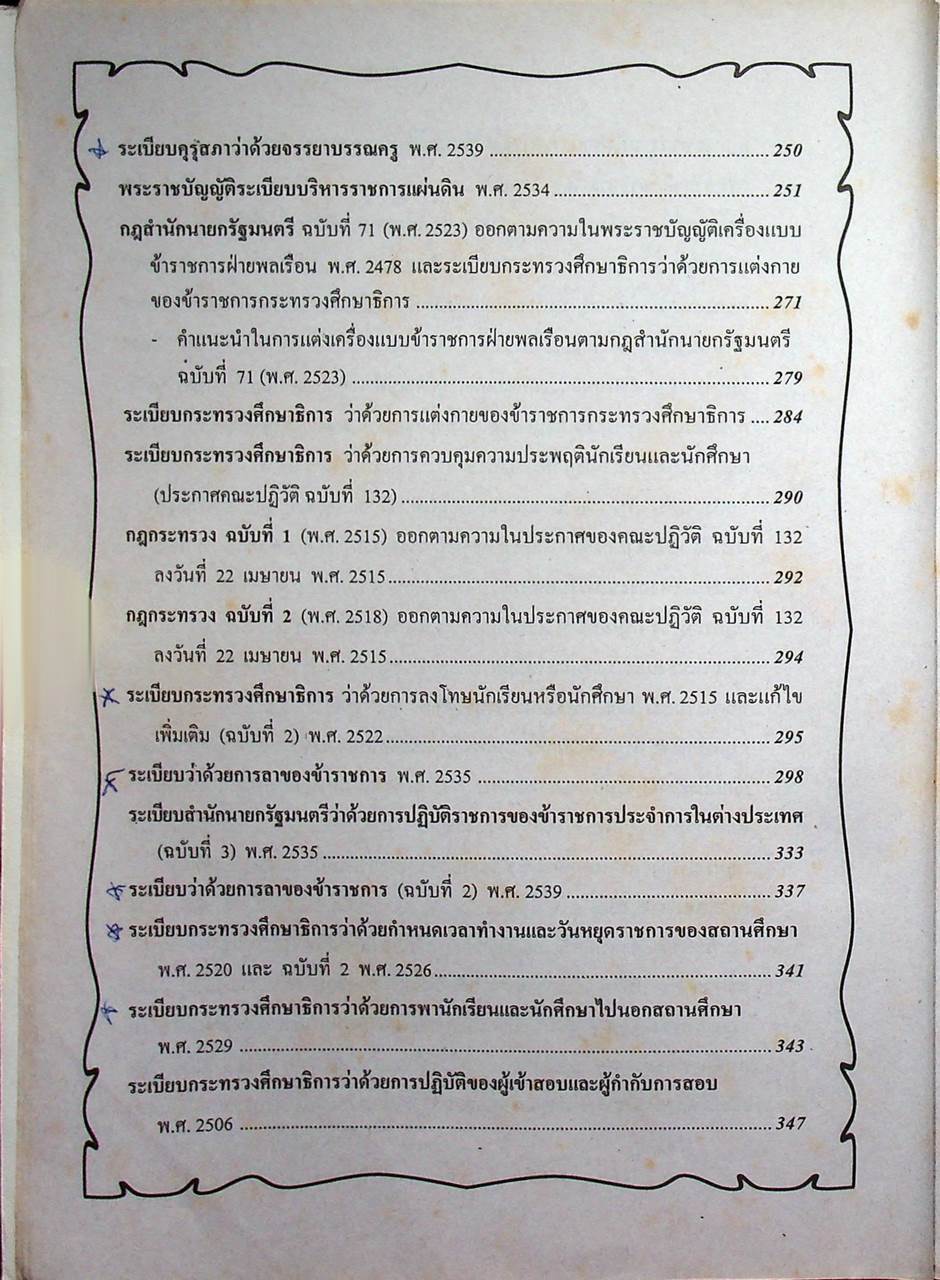 ระเบียบคุรุสภาว่าด้วยจรรยาบรรณครู พ.ศ. 2539 ........................................................ 250
พระราชบัญญัติระเบียบบริหารราชการแผ่นดิน พ.ศ. 2534 ........................................... 251
กฎสำนักนายกรัฐมนตรี ฉบับที่ 71 (พ.ศ. 2523) ออกตามความในพระราชบัญญัติเครื่องแบบ
ข้าราชการฝ่ายพลเรือน พ.ศ. 2478 และระเบียบกระทรวงศึกษาธิการว่าด้วยการแต่งกาย
ของข้าราชการกระทรวงศึกษาธิการ ........................................................................ 271
- คำแนะนำในการแต่งเครื่องแบบข้าราชการฝ่ายพลเรือนตามกฎสำนักนายกรัฐมนตรี
ฉบับที่ 71 (พ.ศ. 2523) ..................................................................................... 279
ระเบียบกระทรวงศึกษาธิการ ว่าด้วยการแต่งกายของข้าราชการกระทรวงศึกษาธิการ .... 284
ระเบียบกระทรวงศึกษาธิการ ว่าด้วยการควบคุมความประพฤตินักเรียนและนักศึกษา
(ประกาศคณะปฏิวัติ ฉบับที่ 132) .......................................................................... 290
กฎกระทรวง ฉบับที่ 1 (พ.ศ. 2515) ออกตามความในประกาศของคณะปฏิวัติ ฉบับที่ 132
ลงวันที่ 22 เมษายน พ.ศ. 2515 ............................................................................. 292
กฎกระทรวง ฉบับที่ 2 (พ.ศ. 2518) ออกตามความในประกาศของคณะปฏิวัติ ฉบับที่ 132
ลงวันที่ 22 เมษายน พ.ศ. 2515 ............................................................................. 294
ระเบียบกระทรวงศึกษาธิการ ว่าด้วยการลงโทษนักเรียนหรือนักศึกษา พ.ศ. 2515 และแก้ไข
เพิ่มเติม (ฉบับที่ 2) พ.ศ. 2522 .............................................................................. 295
ระเบียบว่าด้วยการลาของข้าราชการ พ.ศ. 2535 .......................................................... 298
ระเบียบสำนักนายกรัฐมนตรีว่าด้วยการปฏิบัติราชการของข้าราชการประจำการในต่างประเทศ
(ฉบับที่ 3) พ.ศ. 2535 .......................................................................................... 333
ระเบียบว่าด้วยการลาของข้าราชการ (ฉบับที่ 2) พ.ศ. 2539 ......................................... 337
ระเบียบกระทรวงศึกษาธิการว่าด้วยกำหนดเวลาทำงานและวันหยุดราชการของสถานศึกษา
พ.ศ. 2520 และ ฉบับที่ 2 พ.ศ. 2526 .................................................................... 341
ระเบียบกระทรวงศึกษาธิการว่าด้วยการพานักเรียนและนักศึกษาไปนอกสถานศึกษา
พ.ศ. 2529 ......................................................................................................... 343
ระเบียบกระทรวงศึกษาธิการว่าด้วยการปฏิบัติของผู้เข้าสอบและผู้กำกับการสอบ
พ.ศ. 2506 ......................................................................................................... 347